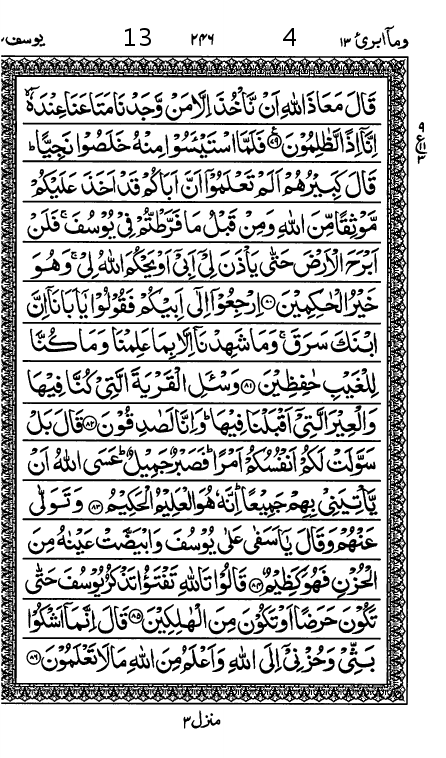 ومآ ابرئ ١٣ 4 ٢٤٦ 13 يوسف ١٢
قَالَ مَعَاذَ اللّٰهِ اَنْ نَّاْخُذَ اِلَّا مَنْ وَّجَدْنَا مَتَاعَنَا عِنْدَهٗۤ ۙ
اِنَّاۤ اِذًا لَّظٰلِمُوْنَ ﴿۷۹﴾ فَلَمَّا اسْتَيْـَٔسُوْا مِنْهُ خَلَصُوْا نَجِيًّا ؕ
قَالَ كَبِيْرُهُمْ اَلَمْ تَعْلَمُوْۤا اَنَّ اَبَاكُمْ قَدْ اَخَذَ عَلَيْكُمْ
مَّوْثِقًا مِّنَ اللّٰهِ وَمِنْ قَبْلُ مَا فَرَّطْتُّمْ فِيْ يُوْسُفَ ۚ فَلَنْ
اَبْرَحَ الْاَرْضَ حَتّٰى يَاْذَنَ لِيْۤ اَبِيْۤ اَوْ يَحْكُمَ اللّٰهُ لِيْ ۚ وَهُوَ
خَيْرُ الْحٰكِمِيْنَ ﴿۸۰﴾ اِرْجِعُوْۤا اِلٰۤى اَبِيْكُمْ فَقُوْلُوْا يٰۤاَبَانَاۤ اِنَّ
ابْنَكَ سَرَقَ ۚ وَمَا شَهِدْنَاۤ اِلَّا بِمَا عَلِمْنَا وَمَا كُنَّا
لِلْغَيْبِ حٰفِظِيْنَ ﴿۸۱﴾ وَسْـَٔلِ الْقَرْيَةَ الَّتِيْ كُنَّا فِيْهَا
وَالْعِيْرَ الَّتِيْۤ اَقْبَلْنَا فِيْهَا ؕ وَاِنَّا لَصٰدِقُوْنَ ﴿۸۲﴾ قَالَ بَلْ
سَوَّلَتْ لَكُمْ اَنْفُسُكُمْ اَمْرًا ؕ فَصَبْرٌ جَمِيْلٌ ؕ عَسَى اللّٰهُ اَنْ
يَّاْتِيَنِيْ بِهِمْ جَمِيْعًا ؕ اِنَّهٗ هُوَ الْعَلِيْمُ الْحَكِيْمُ ﴿۸۳﴾ وَتَوَلّٰى
عَنْهُمْ وَقَالَ يٰۤاَسَفٰى عَلٰى يُوْسُفَ وَابْيَضَّتْ عَيْنٰهُ مِنَ
الْحُزْنِ فَهُوَ كَظِيْمٌ ﴿۸۴﴾ قَالُوْا تَاللّٰهِ تَفْتَؤُا تَذْكُرُ يُوْسُفَ حَتّٰى
تَكُوْنَ حَرَضًا اَوْ تَكُوْنَ مِنَ الْهٰلِكِيْنَ ﴿۸۵﴾ قَالَ اِنَّمَاۤ اَشْكُوْا
بَثِّيْ وَحُزْنِيْۤ اِلَى اللّٰهِ وَاَعْلَمُ مِنَ اللّٰهِ مَا لَا تَعْلَمُوْنَ ﴿۸۶﴾
منزل ٣